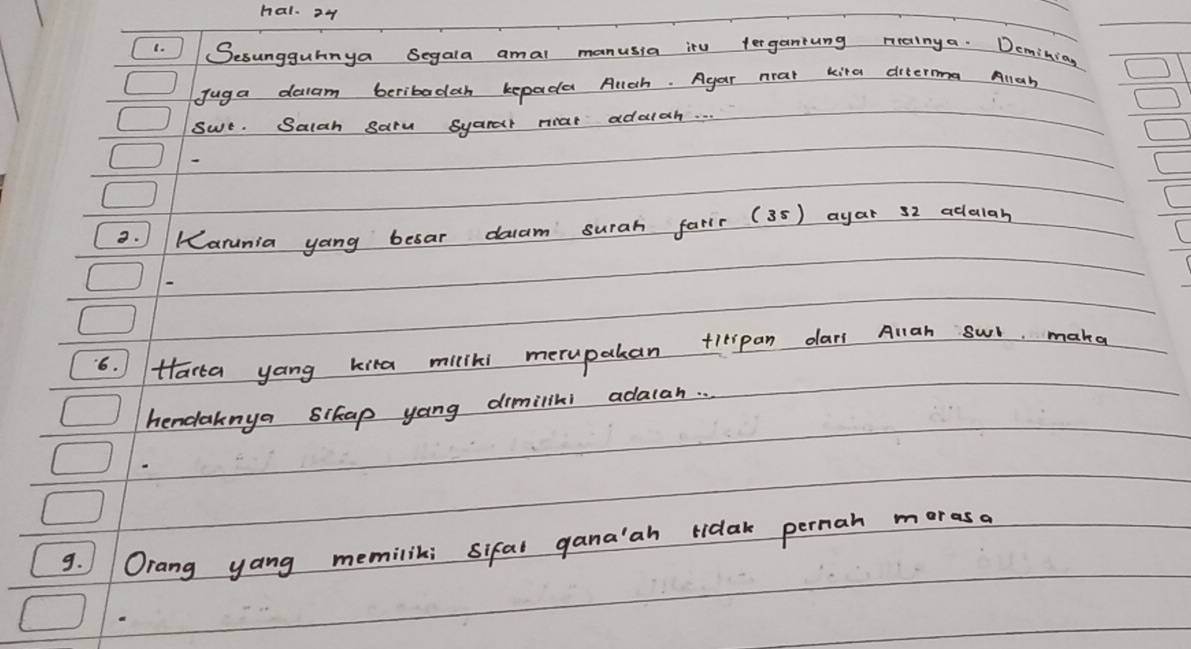 hal. 24
1. Sesungguhnya segala amal manusia itu tergantung niatnya. Demikian
juga dalam beribadah kepada Allah. Agar niat kita diterima Allah
swt. Salah satu syarat niat adalah...
-
2. Karunia yang besar dalam surah fatir (35) ayat 32 adalah
-
6. Harta yang kita miliki merupakan titipan dari Allah swt. maka
hendaknya sikap yang dimiliki adalah...
-
9. Orang yang memiliki sifat qana'ah tidak pernah merasa
-